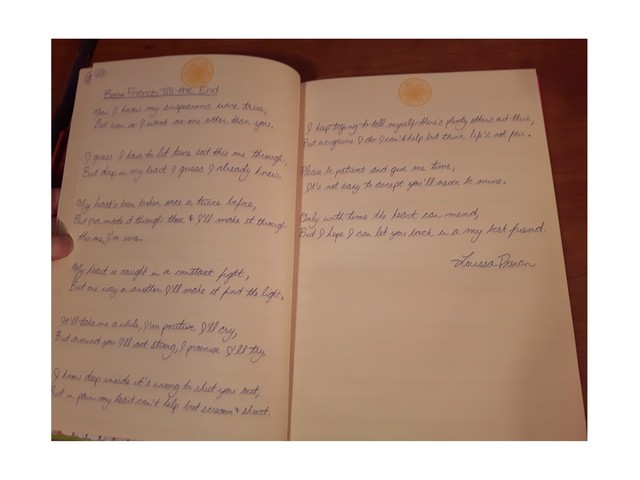 Best Friends Till the End
Now I know my suspicions were true,
But son do I want no one other than you.
I guess I have to let time sort this one through,
But deep in my heart I guess I already knew.
My heart's been broken once or twice before,
But I've made it through those & I'll make it through
this one, I'm sure.
My heart is caught in a constant fight,
But one way or another I'll make it find the light.
It'll take me awhile, I'm positive I'll cry,
But around you I'll act strong, I promise I'll try.
I know deep inside it's wrong to shut you out,
But in pain my heart can't help but scream & shout.
I keep trying to tell myself there's plenty others out there,
But everytime I do I can't help but think life's not fair.
Please be patient and give me time,
It's not easy to accept you'll never be mine.
Only with time the heart can mend,
But I hope I can let you back in as my best friend.
Larissa